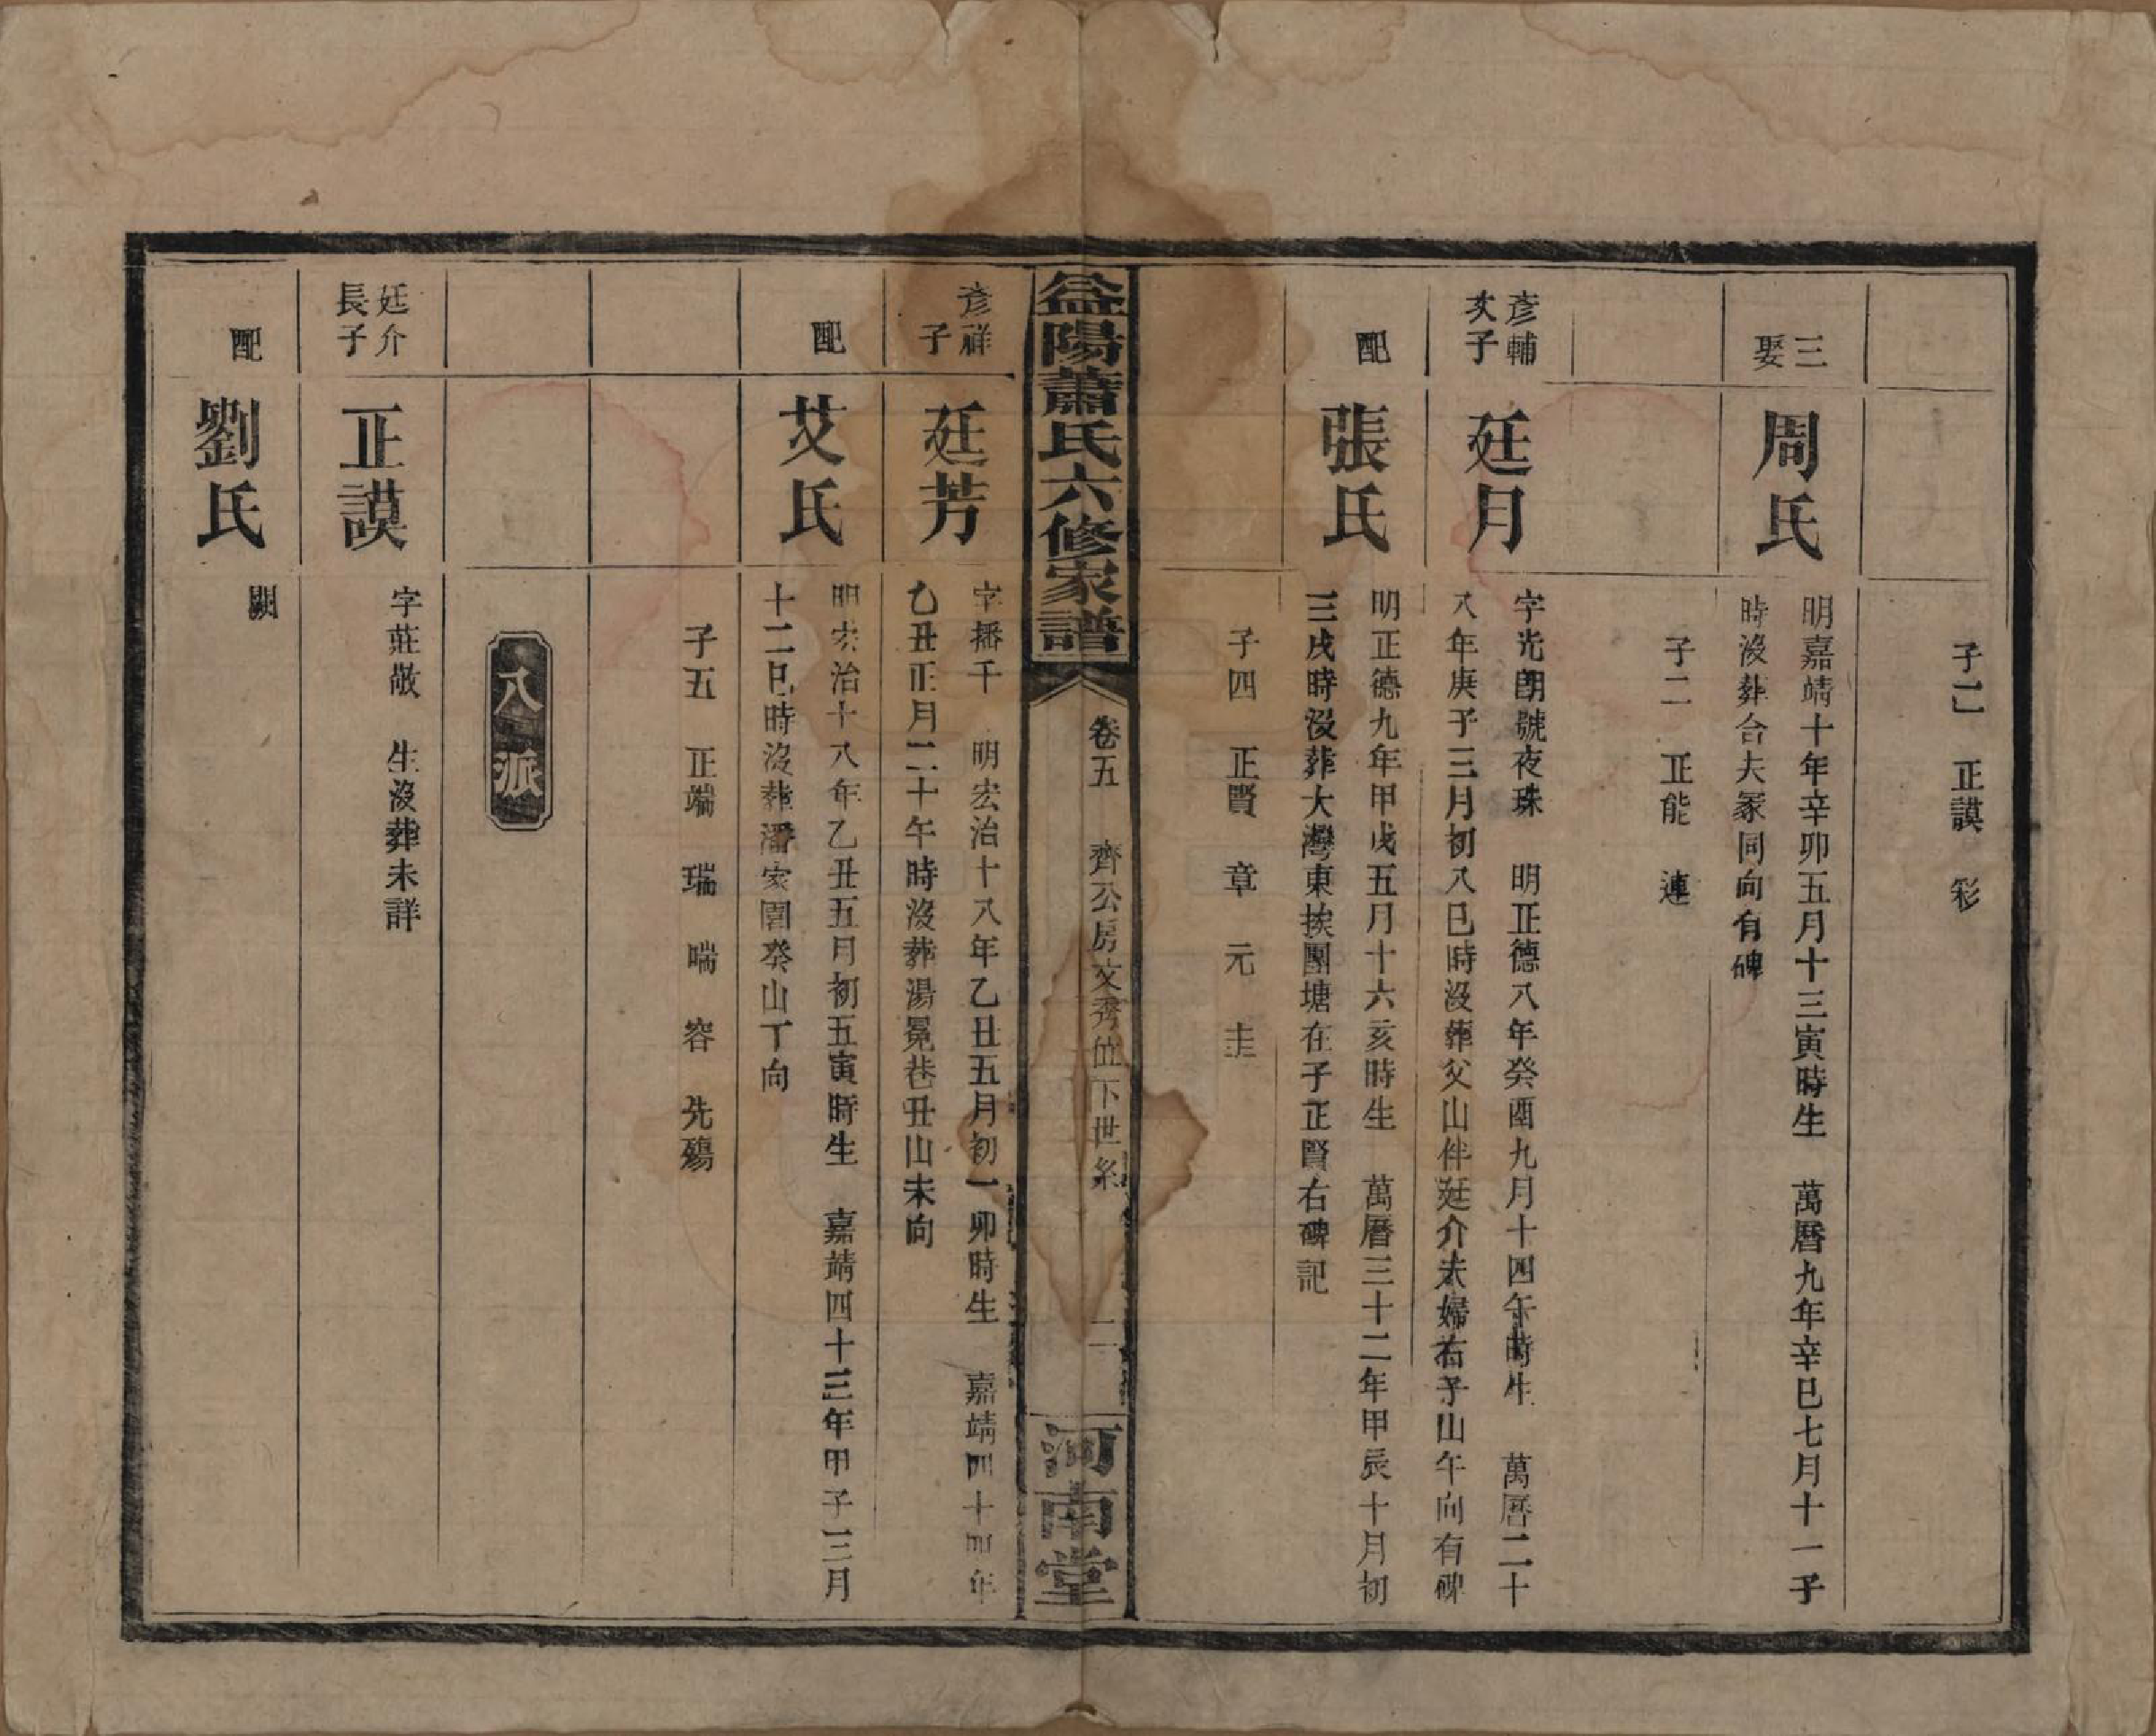 子二　正謨　彩
三娶
周氏
明嘉靖十年辛卯五月十三寅時生　萬曆九年辛巳七月十一子
時沒葬合夫冢同向有碑
子二　正能　連
彥輔
次子
廷月
字光朗號夜珠　明正德八年癸酉九月十四午時生　萬曆二十
八年庚子三月初八巳時沒葬父山伴廷介夫婦右子山午向有碑
配
張氏
明正德九年甲戌五月十六亥時生　萬曆三十二年甲辰十月初
三戌時沒葬大灣東挨團塘在子正賢右碑記
子四　正賢　章　元　圭
益陽蕭氏六修家譜
卷五　齊公房文秀位下世系　二
河南堂
彥祥
子
廷芳
字播千　明宏治十八年乙丑五月初一卯時生　嘉靖四十四年
乙丑正月二十午時沒葬湯冕巷丑山未向
配
艾氏
明宏治十八年乙丑五月初五寅時生　嘉靖四十三年甲子三月
十二巳時沒葬潘家園癸山丁向
子五　正端　瑞　喘　容　先殤
八派
廷介
長子
正謨
字莊敬　生沒葬未詳
配
劉氏
闕